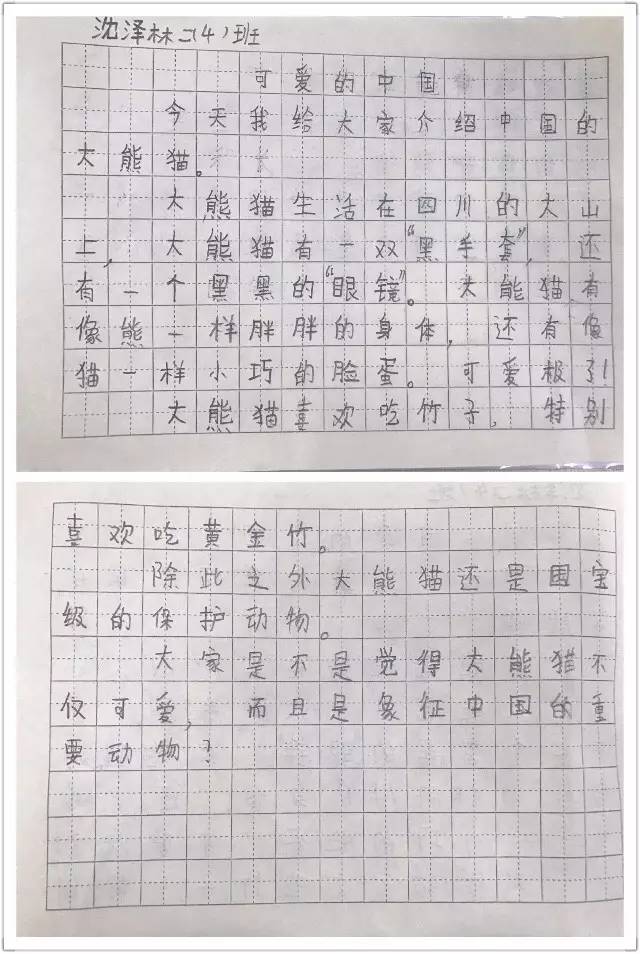 沈泽林二(4)班
可爱的中国
今天我给大家介绍中国的
大熊猫。
大熊猫生活在四川的大山
上,大熊猫有一双“黑手套”,还
有一个黑黑的“眼镜”。大能猫有
像熊一样胖胖的身体,还有像
猫一样小巧的脸蛋。可爱极了!
大熊猫喜欢吃竹子,特别
喜欢吃黄金竹。
除此之外大熊猫还是国宝
级的保护动物。
大家是不是觉得大熊猫不
仅可爱,而且是象征中国的重
要动物?